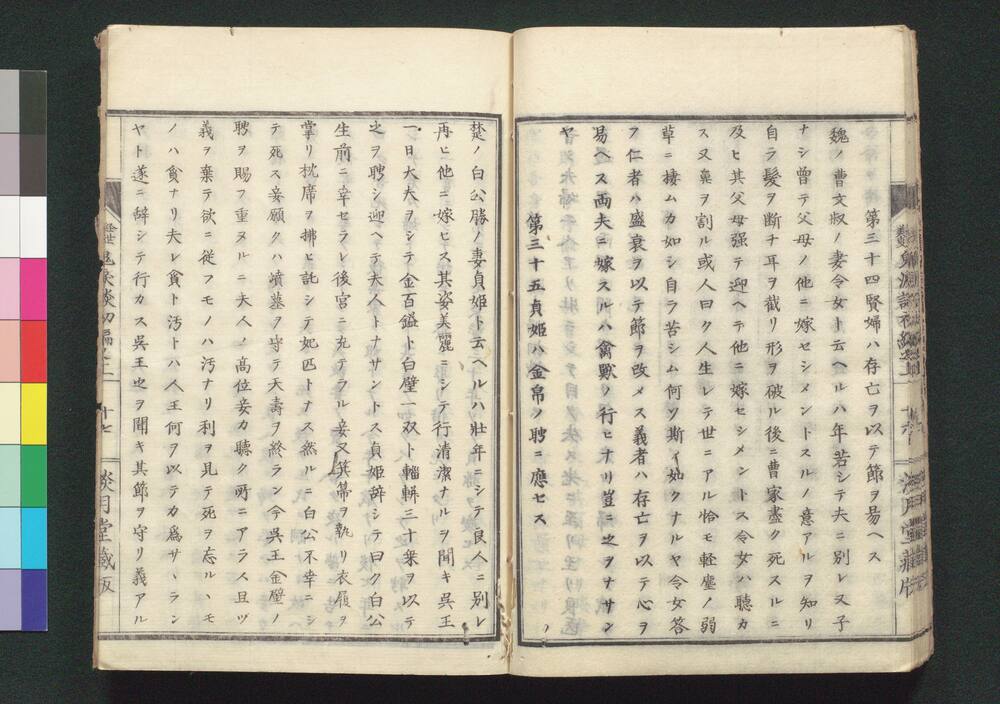 第三十四賢婦ハ存亡ヲ以テ節ヲ易ヘス
魏ノ曹文叔ノ妻令女ト云ヘルハ年若シテ夫ニ別レ又子
ナシ曾テ父母ノ他ニ嫁セシメントスルノ意アルヲ知リ
自ラ髪ヲ断チ耳ヲ截リ形ヲ破ル後ニ曹家盡ク死スルニ
及ヒ其父母强テ迎ヘテ他ニ嫁セシメントス令女ハ聴カ
ス又鼻ヲ割ル或人曰ク人生レテ世ニアル恰モ軽塵ノ弱
草ニ棲ムカ如シ自ラ苦シム何ソ斯ノ如クナルヤ令女答
フ仁者ハ盛衰ヲ以テ節ヲ改メス義者ハ存亡ヲ以テ心ヲ
易ヘス両夫ニ嫁スルハ禽獸ノ行ヒナリ豈ニ之ヲナサン
ヤ
第三十五貞姬ハ金帛ノ聘ニ應セス
楚ノ白公勝ノ妻貞姬ト云ヘルハ壯年ニシテ良人ニ別レ
再ヒ他ニ嫁ヒス其姿美麗ニシテ行清潔ナルヲ聞キ吳王
一日大夫ヲシテ金百鎰ト白璧一双ト輜軿三十乗ヲ以テ
之ヲ聘シ迎ヘテ夫人トナサントス貞姬辞シテ曰ク白公
生前ニ幸セラレ後宮ニ充テラル妾又箕箒ヲ執リ衣履ヲ
掌リ枕席ヲ拂ヒ託シテ妃匹トナス然ルニ白公不幸ニシ
テ死ス妾願クハ墳墓ヲ守テ天壽ヲ終ラン今吳王金璧ノ
聘ヲ賜フ重ヌルニ夫人ノ高位妾カ聽ク所ニアラス且ツ
義ヲ棄テ欲ニ從フモノハ汚ナリ利ヲ見テ死ヲ忘ルハモ
ノハ貪ナリ夫レ貪ト汚トハ人王何ヲ以テカ爲サヽラン
ヤト遂ニ辞シテ行カス吳王之ヲ聞キ其節ヲ守リ義アル
談初編之二
十七
談月堂藏版